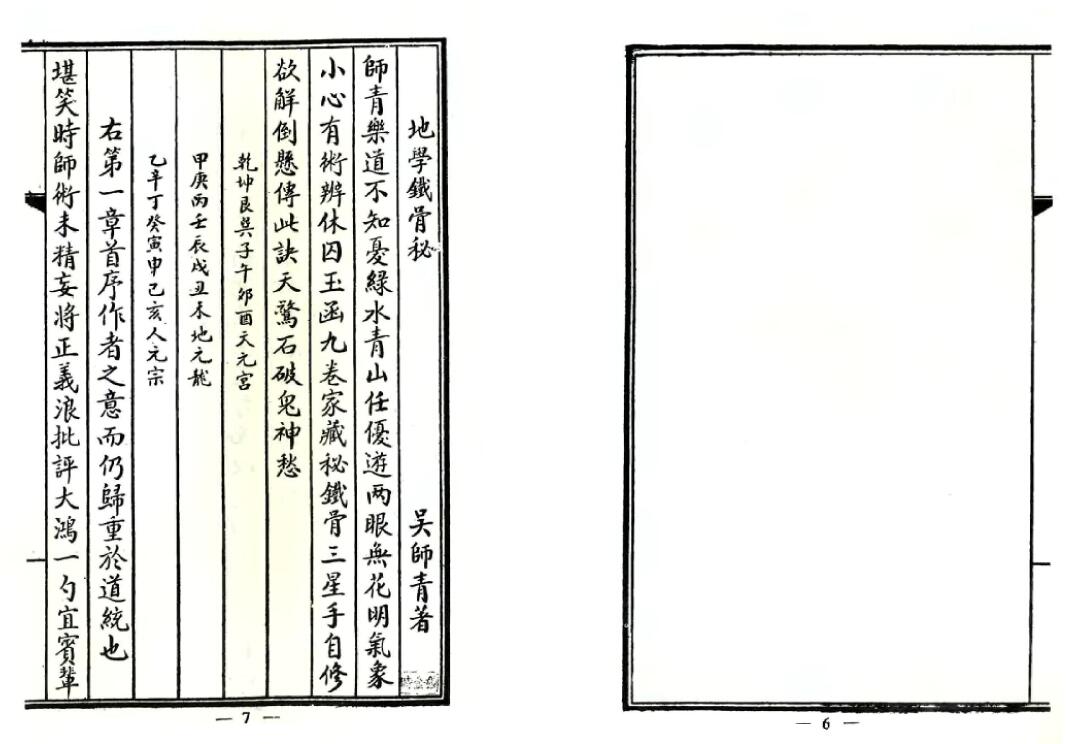 地學鐵骨秘 吳師青著
師青樂道不知憂綠水青山任優遊两眼無花明氣象
小心有術辨休囚玉函九卷家藏秘鐵骨三星手自修
欲解倒懸傳此訣天驚石破鬼神愁
乾坤艮巽子午卯酉天元宮
甲庚丙壬辰戌丑未地元龍
乙辛丁癸寅申己亥人元宗
右第一章首序作者之意而仍歸重於道統也
堪笑時師術未精妄將正義浪批評大鴻一勺宜賓輩
— 7 —
— 6 —